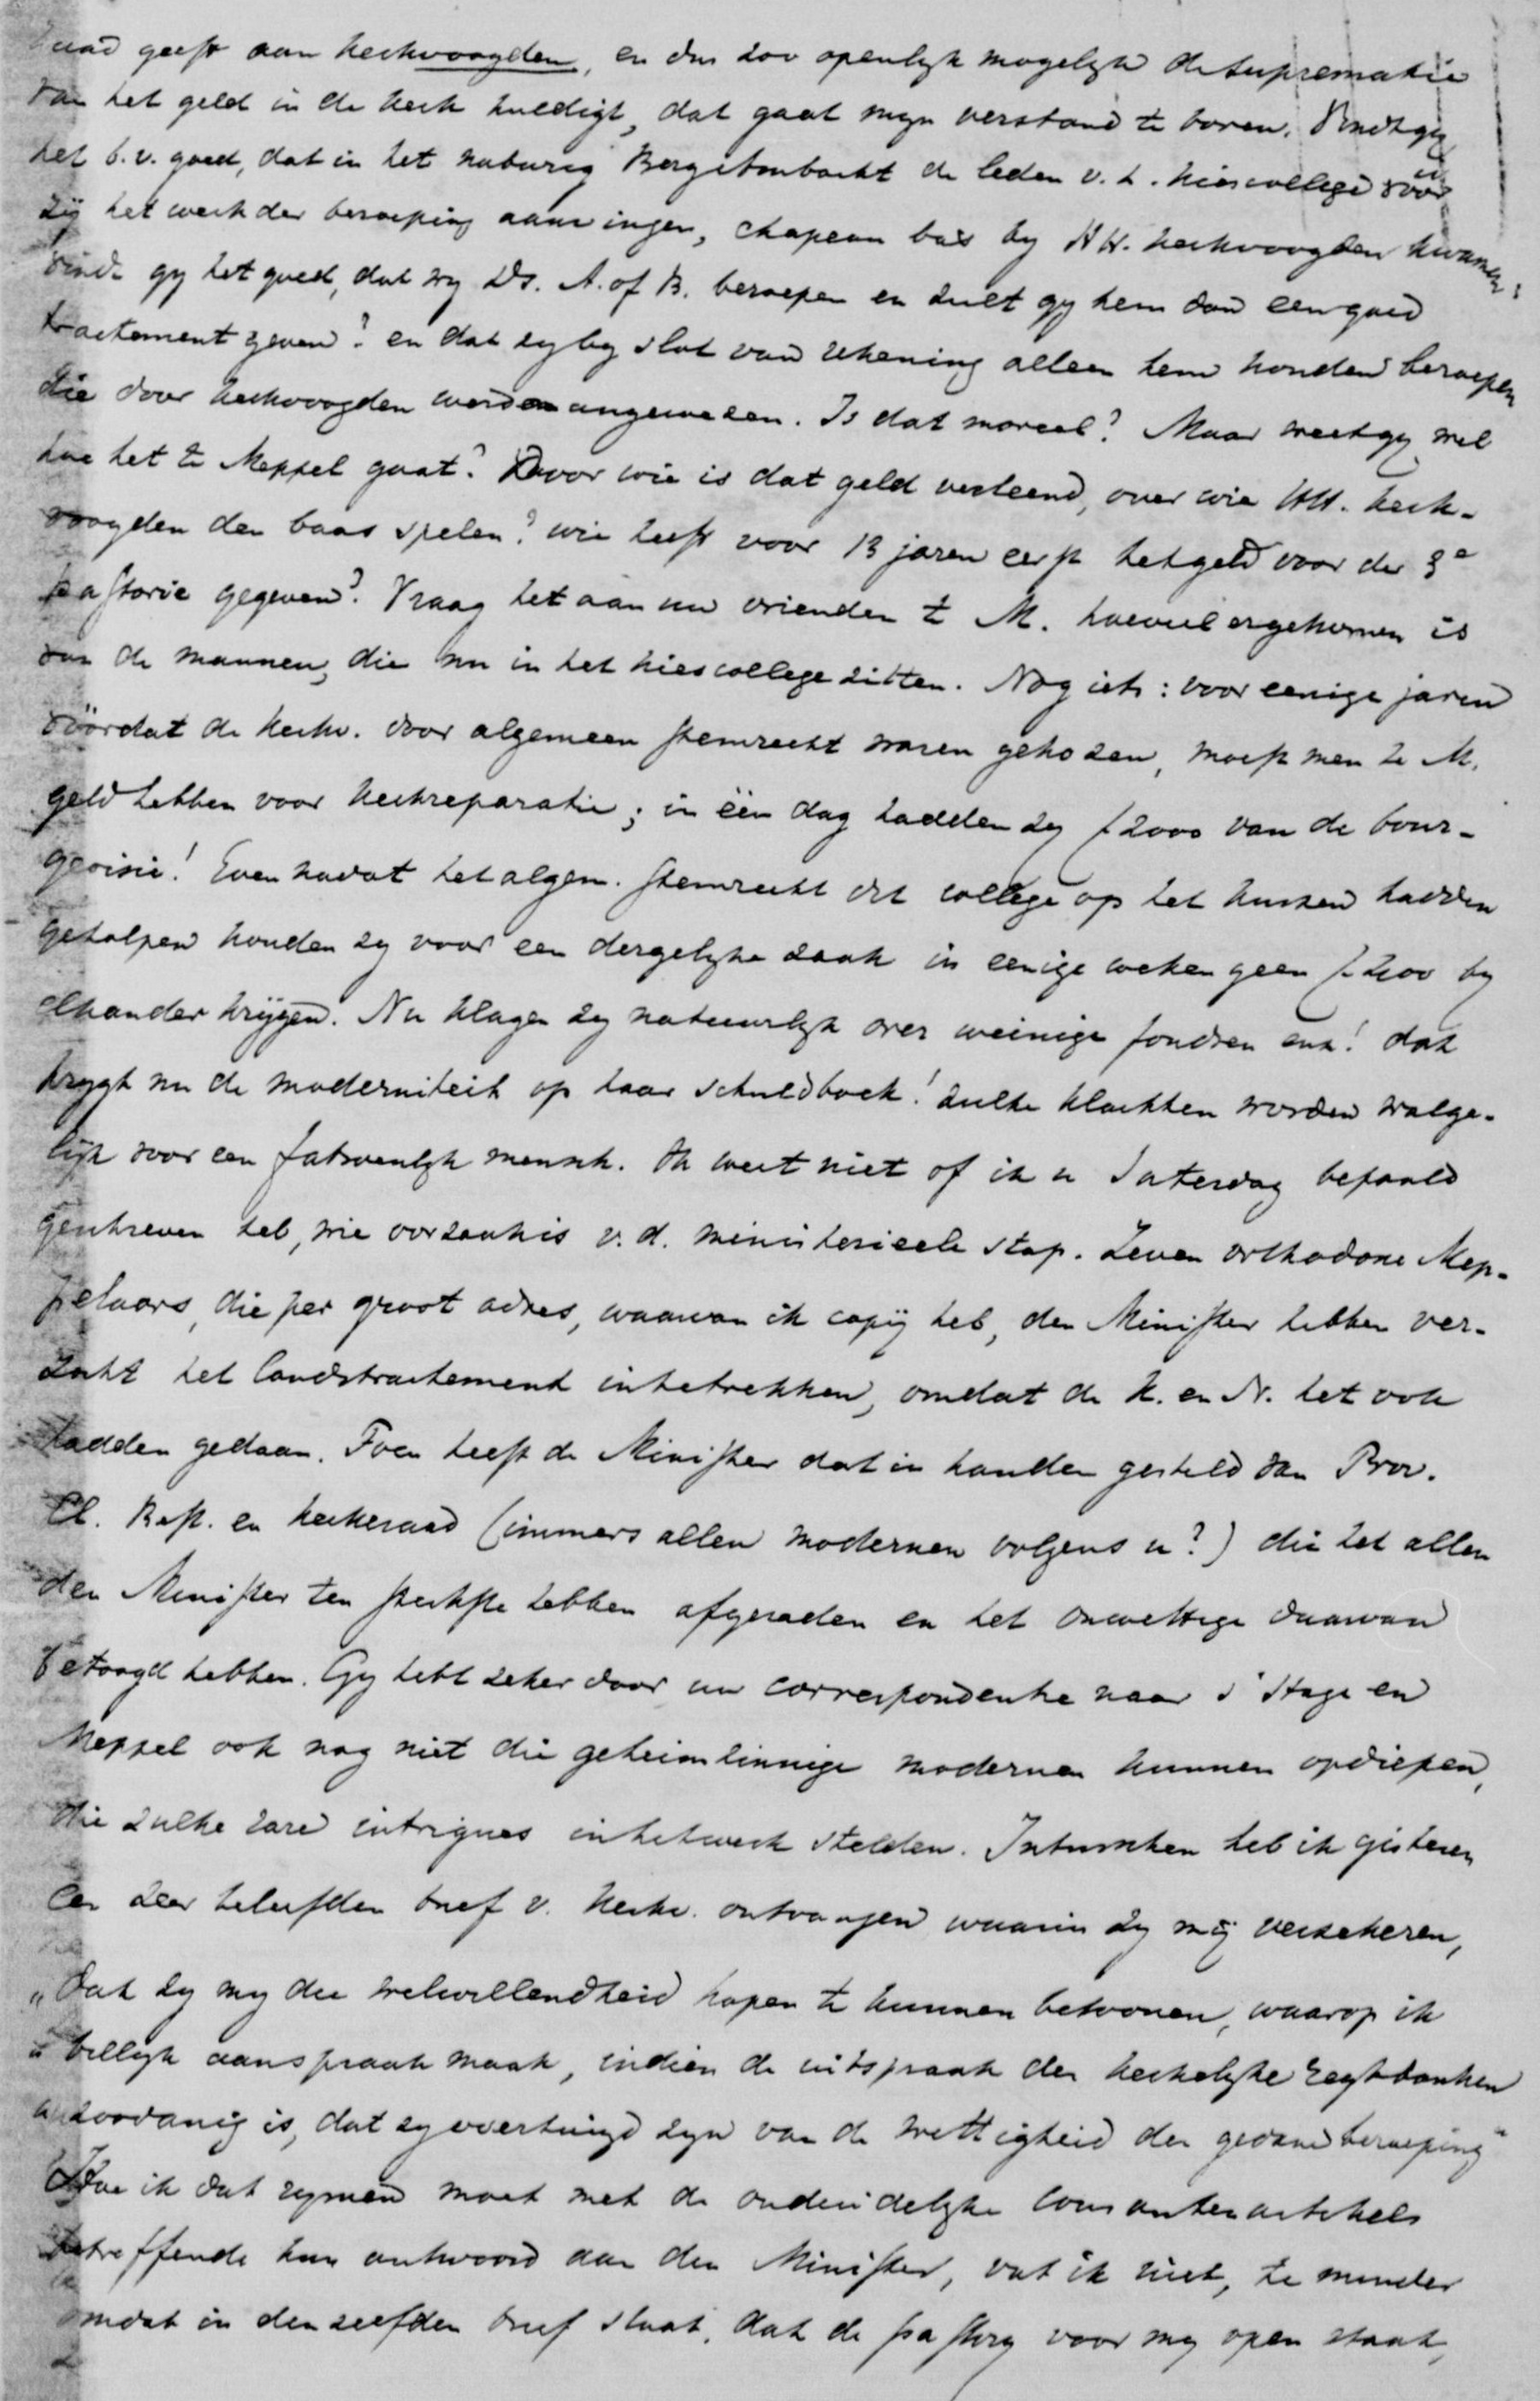 raad geeft aan kerkvoogden, en dus zoo openlyk mogelyk de suprematie
van het geld in de kerk huldigt, dat gaat myn verstand te boven. Vindt gy
het b.v. goed, dat in het naburig Bergambacht de leden v. h. kiescollege vóór
zy het werk der beroeping aanvingen, chapeau bas by HH. kerkvoogden kwamen:
vindt gy het goed, dat wy Ds. A. of B. beroepen en zult gy hem dan een goed
tractement geven? en dat zy by slot van rekening alleen hem konden beroepen
die door kerkvoogden werden aangewezen. Is dat moreel? Maar weet gy wel
hoe het te Meppel gaat? Door wie is dat geld verleend, over wie HH. kerk-
voogden den baas spelen? wie heeft voor 13 jaren eerst het geld voor de 3e
pastorie gegeven? Vraag het aan uw vrienden te M. hoeveel er gekomen is
van de mannen, die nu in het kiescollege zitten. Nog iets: voor eenige jaren
vóórdat de kerkv. door algemeen stemrecht waren gekozen, moest men te M.
geld hebben voor kerkreparatie; in één dag hadden zy f 2000 van de bour-
geoisie! Even nadat het algem. stemrecht dit college op het kussen hadden
geholpen konden zy voor een dergelyke zaak in eenige weken geen f 200 by
elkander krygen. Nu klagen zy natuurlyk over weinige fondsen enz! dat
krygt nu de moderniteit op haar schuldboek! zulke klachten worden walge-
lyk voor een fatsoenlyk mensch. Ik weet niet of ik u Saterdag bepaald
geschreven heb, wie oorzaak is v. d. ministerieele stap. Zeven orthodoxe Mep-
pelaars, die per groot adres, waarvan ik copij heb, den Minister hebben ver-
zocht het landstractement in te trekken, omdat de K. en N. het ook
hadden gedaan. Toen heeft de Minister dat in handen gesteld van Prov.
Cl. Best. en kerkeraad (immers allen modernen volgens u?) die het allen
den Minister ten sterkste hebben afgeraden en het onwettige daarvan
betoogd hebben. Gy hebt zeker door uw correspondentie naar 's Hage en
Meppel ook nog niet die geheimzinnige modernen kunnen opdiepen,
die zulke rare intrigues in het werk stelden. Intusschen heb ik gisteren
een zeer beleefden brief v. kerkv. ontvangen waarin zy mij verzekeren,
"dat zy my die welwillendheid hopen te kunnen betoonen, waarop ik
"billyk aanspraak maak, indien de uitspraak der kerkelyke regtbanken
zoodanig is, dat zy overtuigd zyn van de wettigheid der gedane beroeping"
Hoe ik dat rymen moet met de onduidelyke Courantenartikels
betreffende hun antwoord aan den Minister, vat ik niet, te minder
omdat in denzelfden brief staat, dat de pastory voor my open staat,